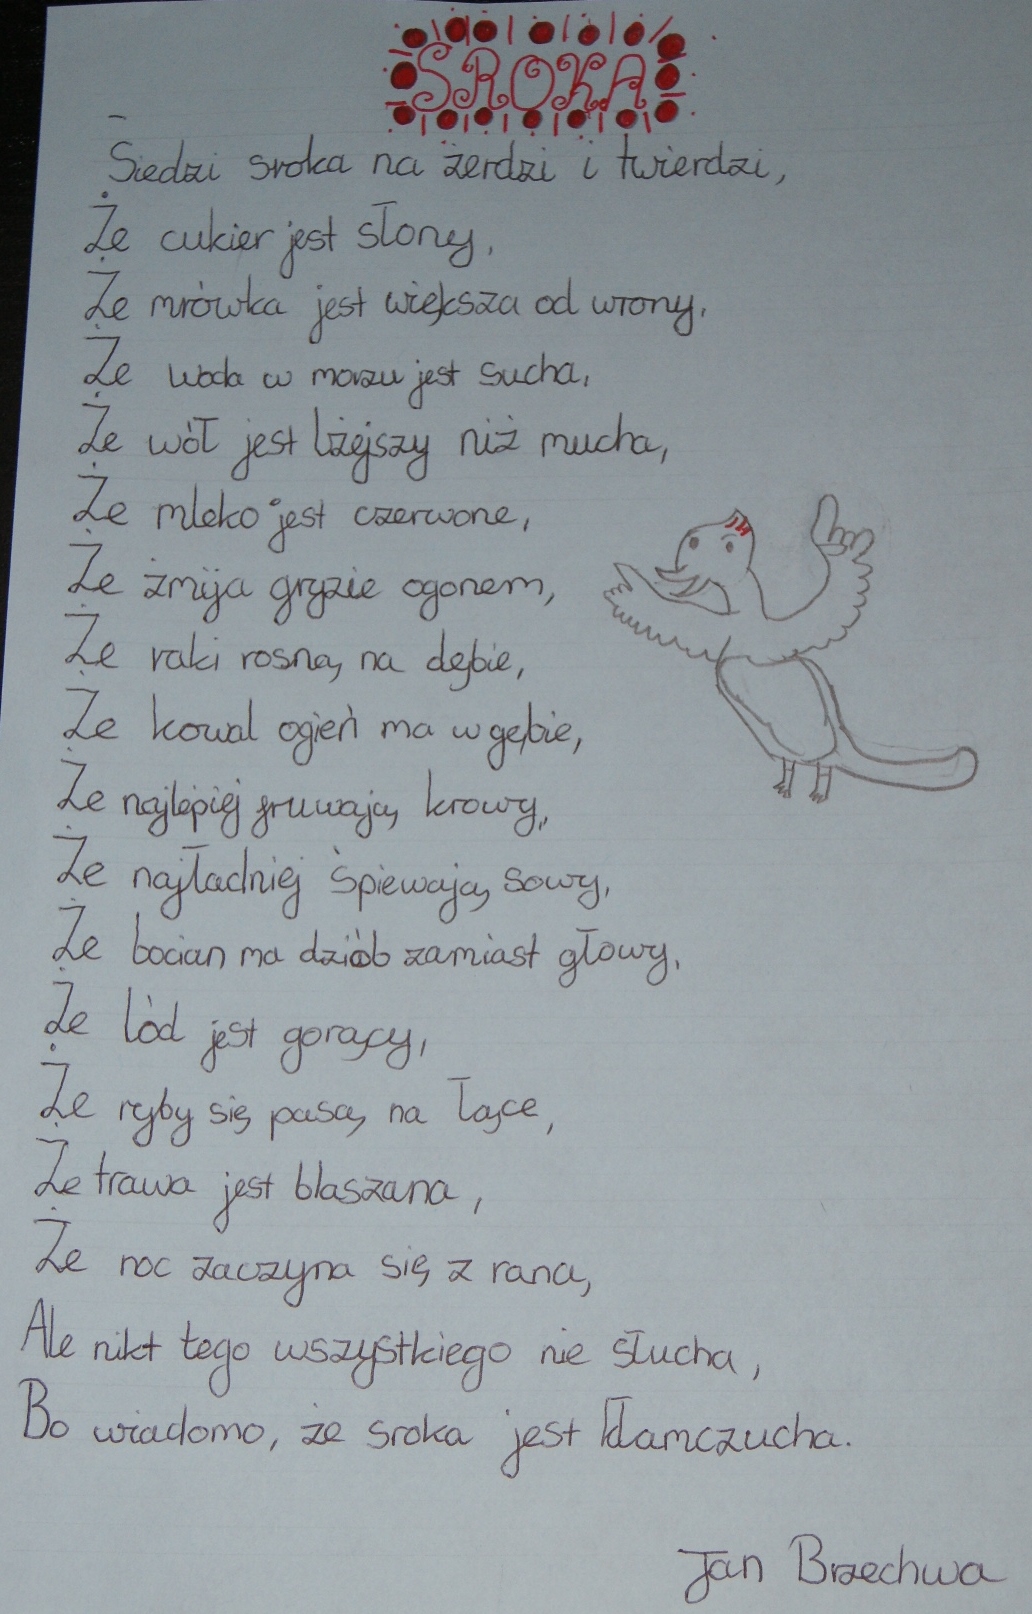 SROKA
Siedzi sroka na żerdzi i twierdzi,
Że cukier jest słony,
Że mrówka jest większa od wrony,
Że woda w morzu jest sucha,
Że wół jest lżejszy niż mucha,
Że mleko jest czerwone,
Że żmija gryzie ogonem,
Że raki rosną na dębie,
Że kowal ogień ma w gębie,
Że najlepiej fruwają krowy,
Że najładniej śpiewają sowy,
Że bocian ma dziób zamiast głowy,
Że lód jest gorący,
Że ryby się pasą na łące,
Że trawa jest blaszana,
Że noc zaczyna się z rana,
Ale nikt tego wszystkiego nie słucha,
Bo wiadomo, że sroka jest kłamczucha.
Jan Brzechwa